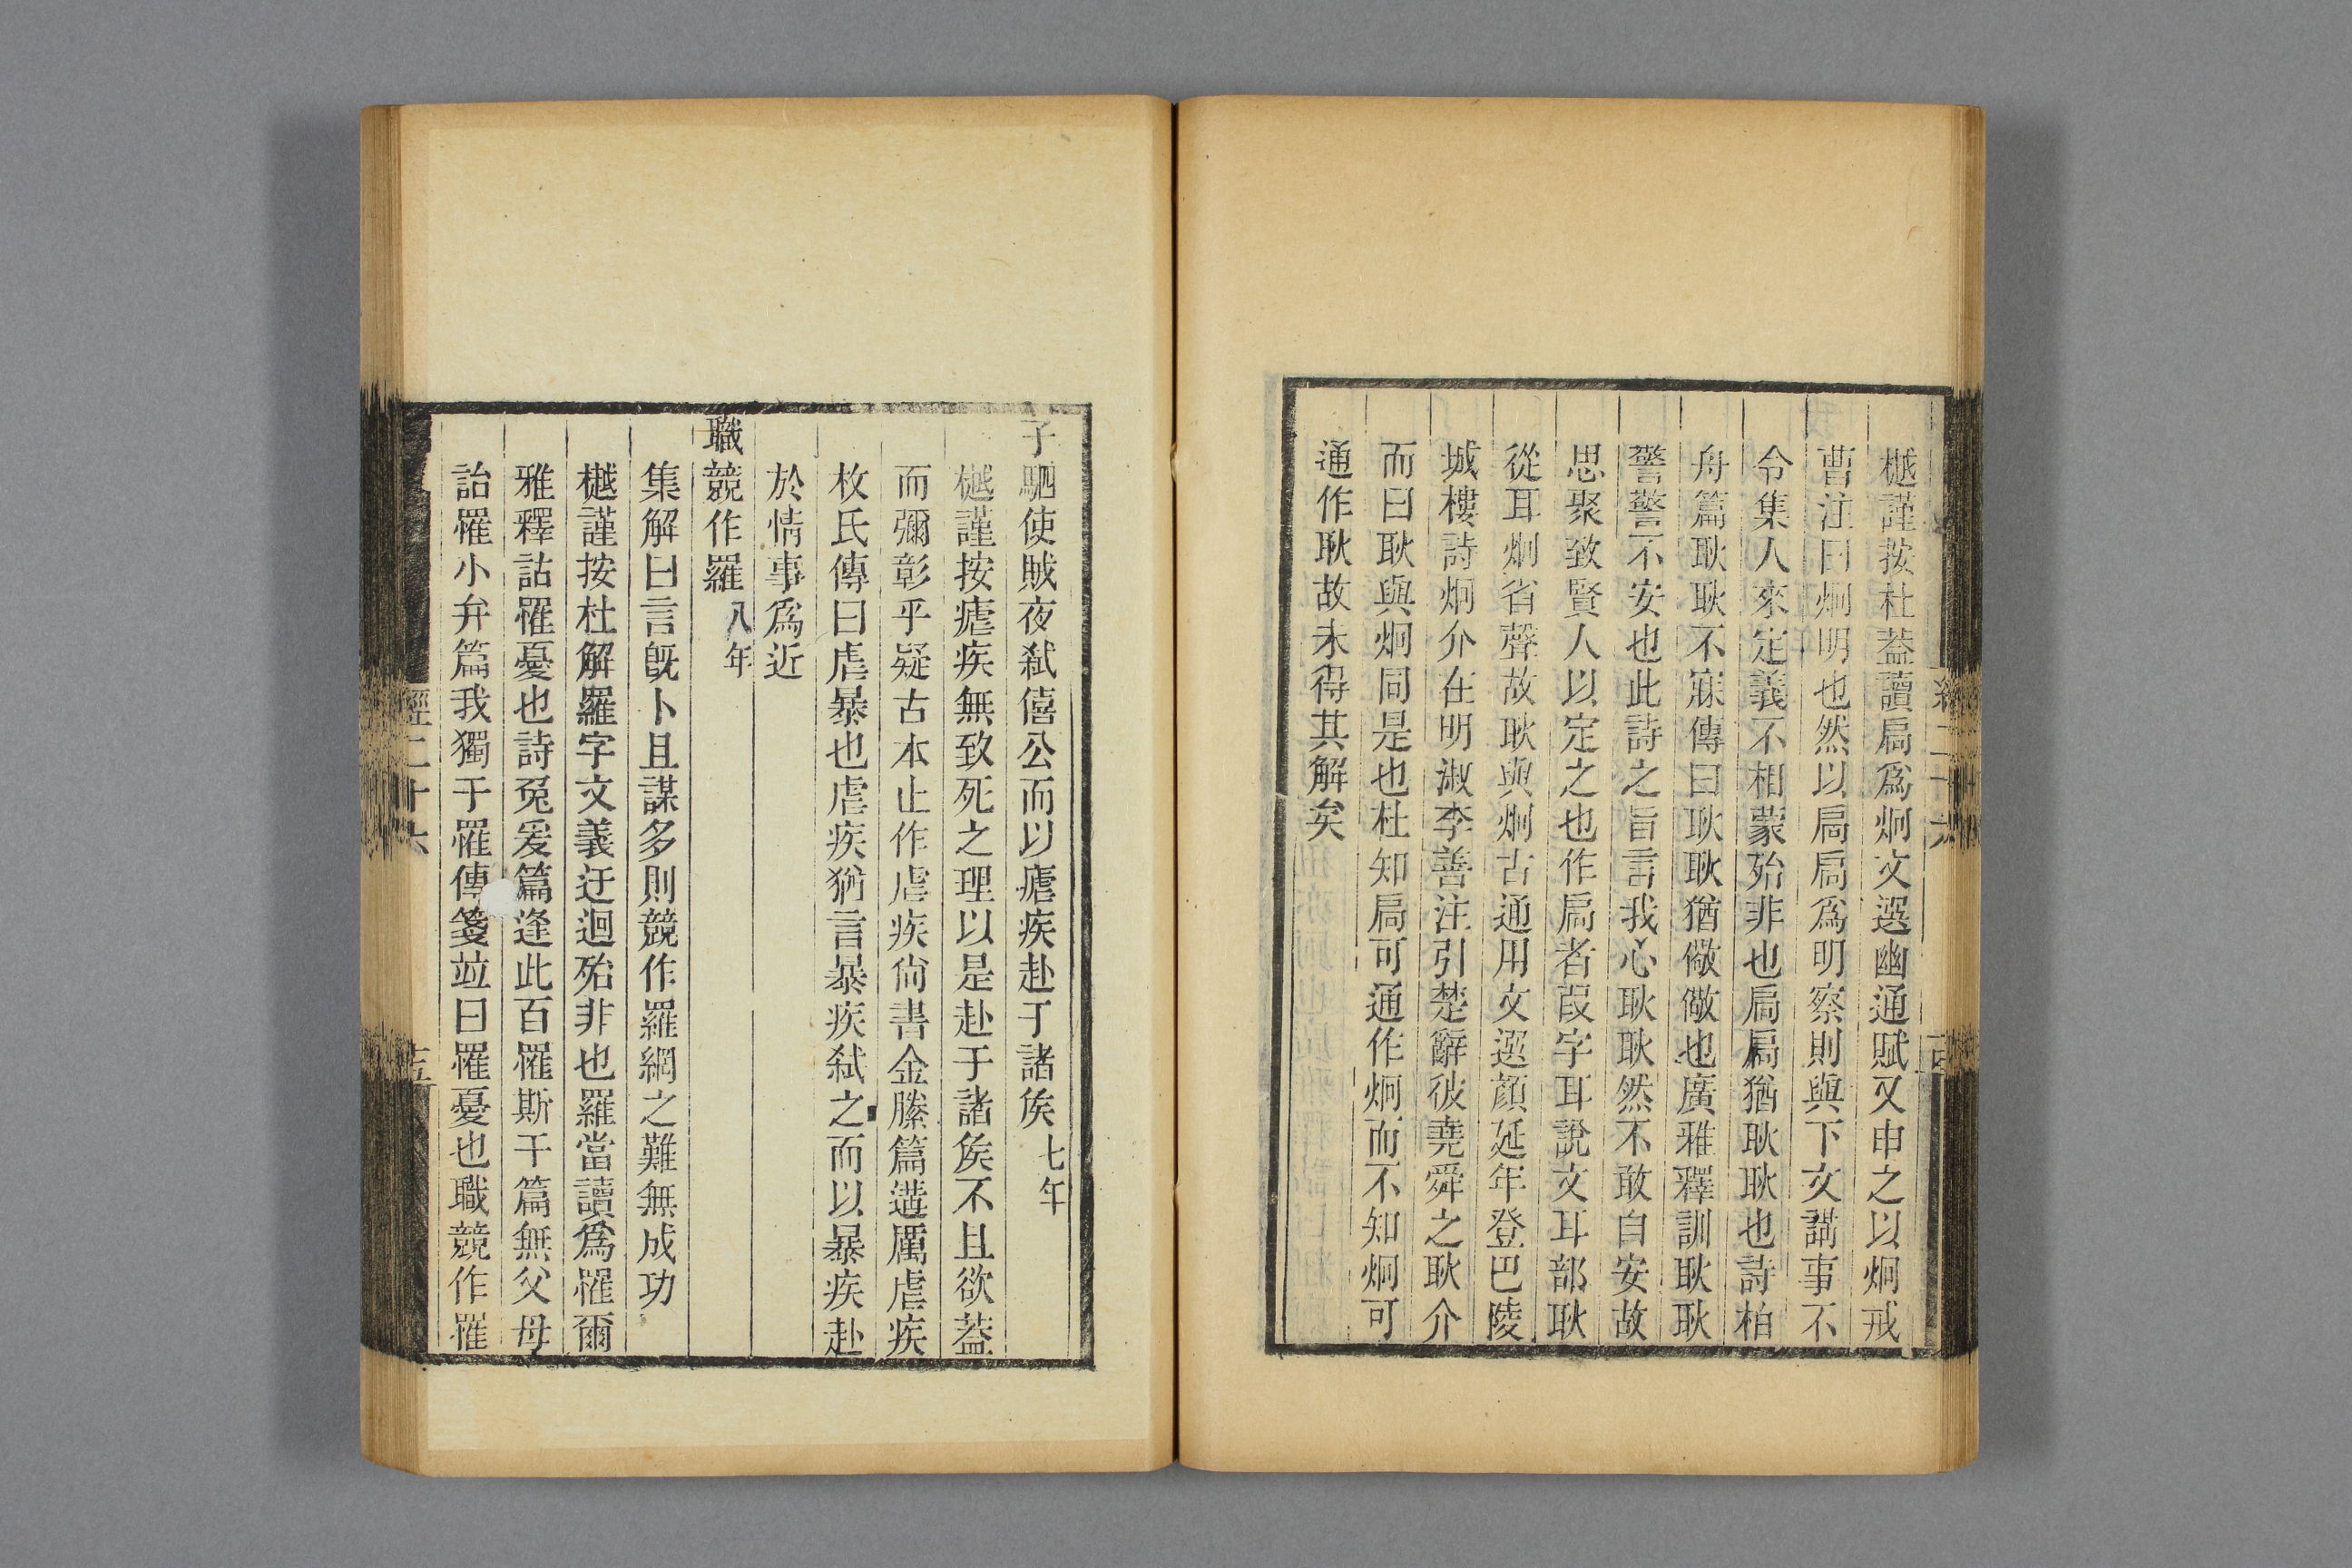 樾謹按杜蓋讀扃爲炯文選幽通賦又申之以炯戒
曹注曰炯明也然以扃扃爲明察則與下文講事不
令集人來定義不相蒙殆非也扃扃猶耿耿也詩柏
舟篇耿耿不寐傳曰耿耿猶儆儆也廣雅釋訓耿耿
警警不安也此詩之旨言我心耿耿然不敢自安故
思聚致賢人以定之也作扃者叚字耳說文耳部耿
從耳炯省聲故耿與炯古通用文選顏延年登巴陵
城樓詩炯介在明淑李善注引楚辭彼堯舜之耿介
而曰耿與炯同是也杜知扃可通作炯而不知炯可
通作耿故未得其解矣
子駟使賊夜弑僖公而以瘧疾赴于諸矦七年
樾謹按瘧疾無致死之理以是赴于諸矦不且欲蓋
而彌彰乎疑古本止作虐疾尙書金縢篇遘厲虐疾
枚氏傳曰虐暴也虐疾猶言暴疾弑之而以暴疾赴
於情事爲近
職競作羅八年
集解曰言旣卜且謀多則競作羅網之難無成功
樾謹按杜解羅字文義迂迴殆非也羅當讀爲罹爾
雅釋詁罹憂也詩兔爰篇逢此百罹斯干篇無父母
詒罹小弁篇我獨于罹傳箋竝曰罹憂也職競作罹
經二十六